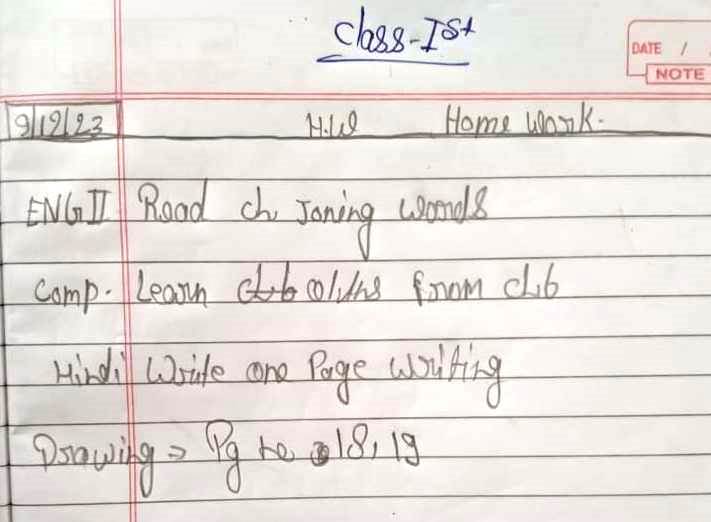 Class-Ist
DATE /
NOTE
9/12/23 H.W Home Work.
ENG II Read ch Joning words
Comp. Learn from ch6
Hindi Write one Page writing
Drawing → Pg 18, 19